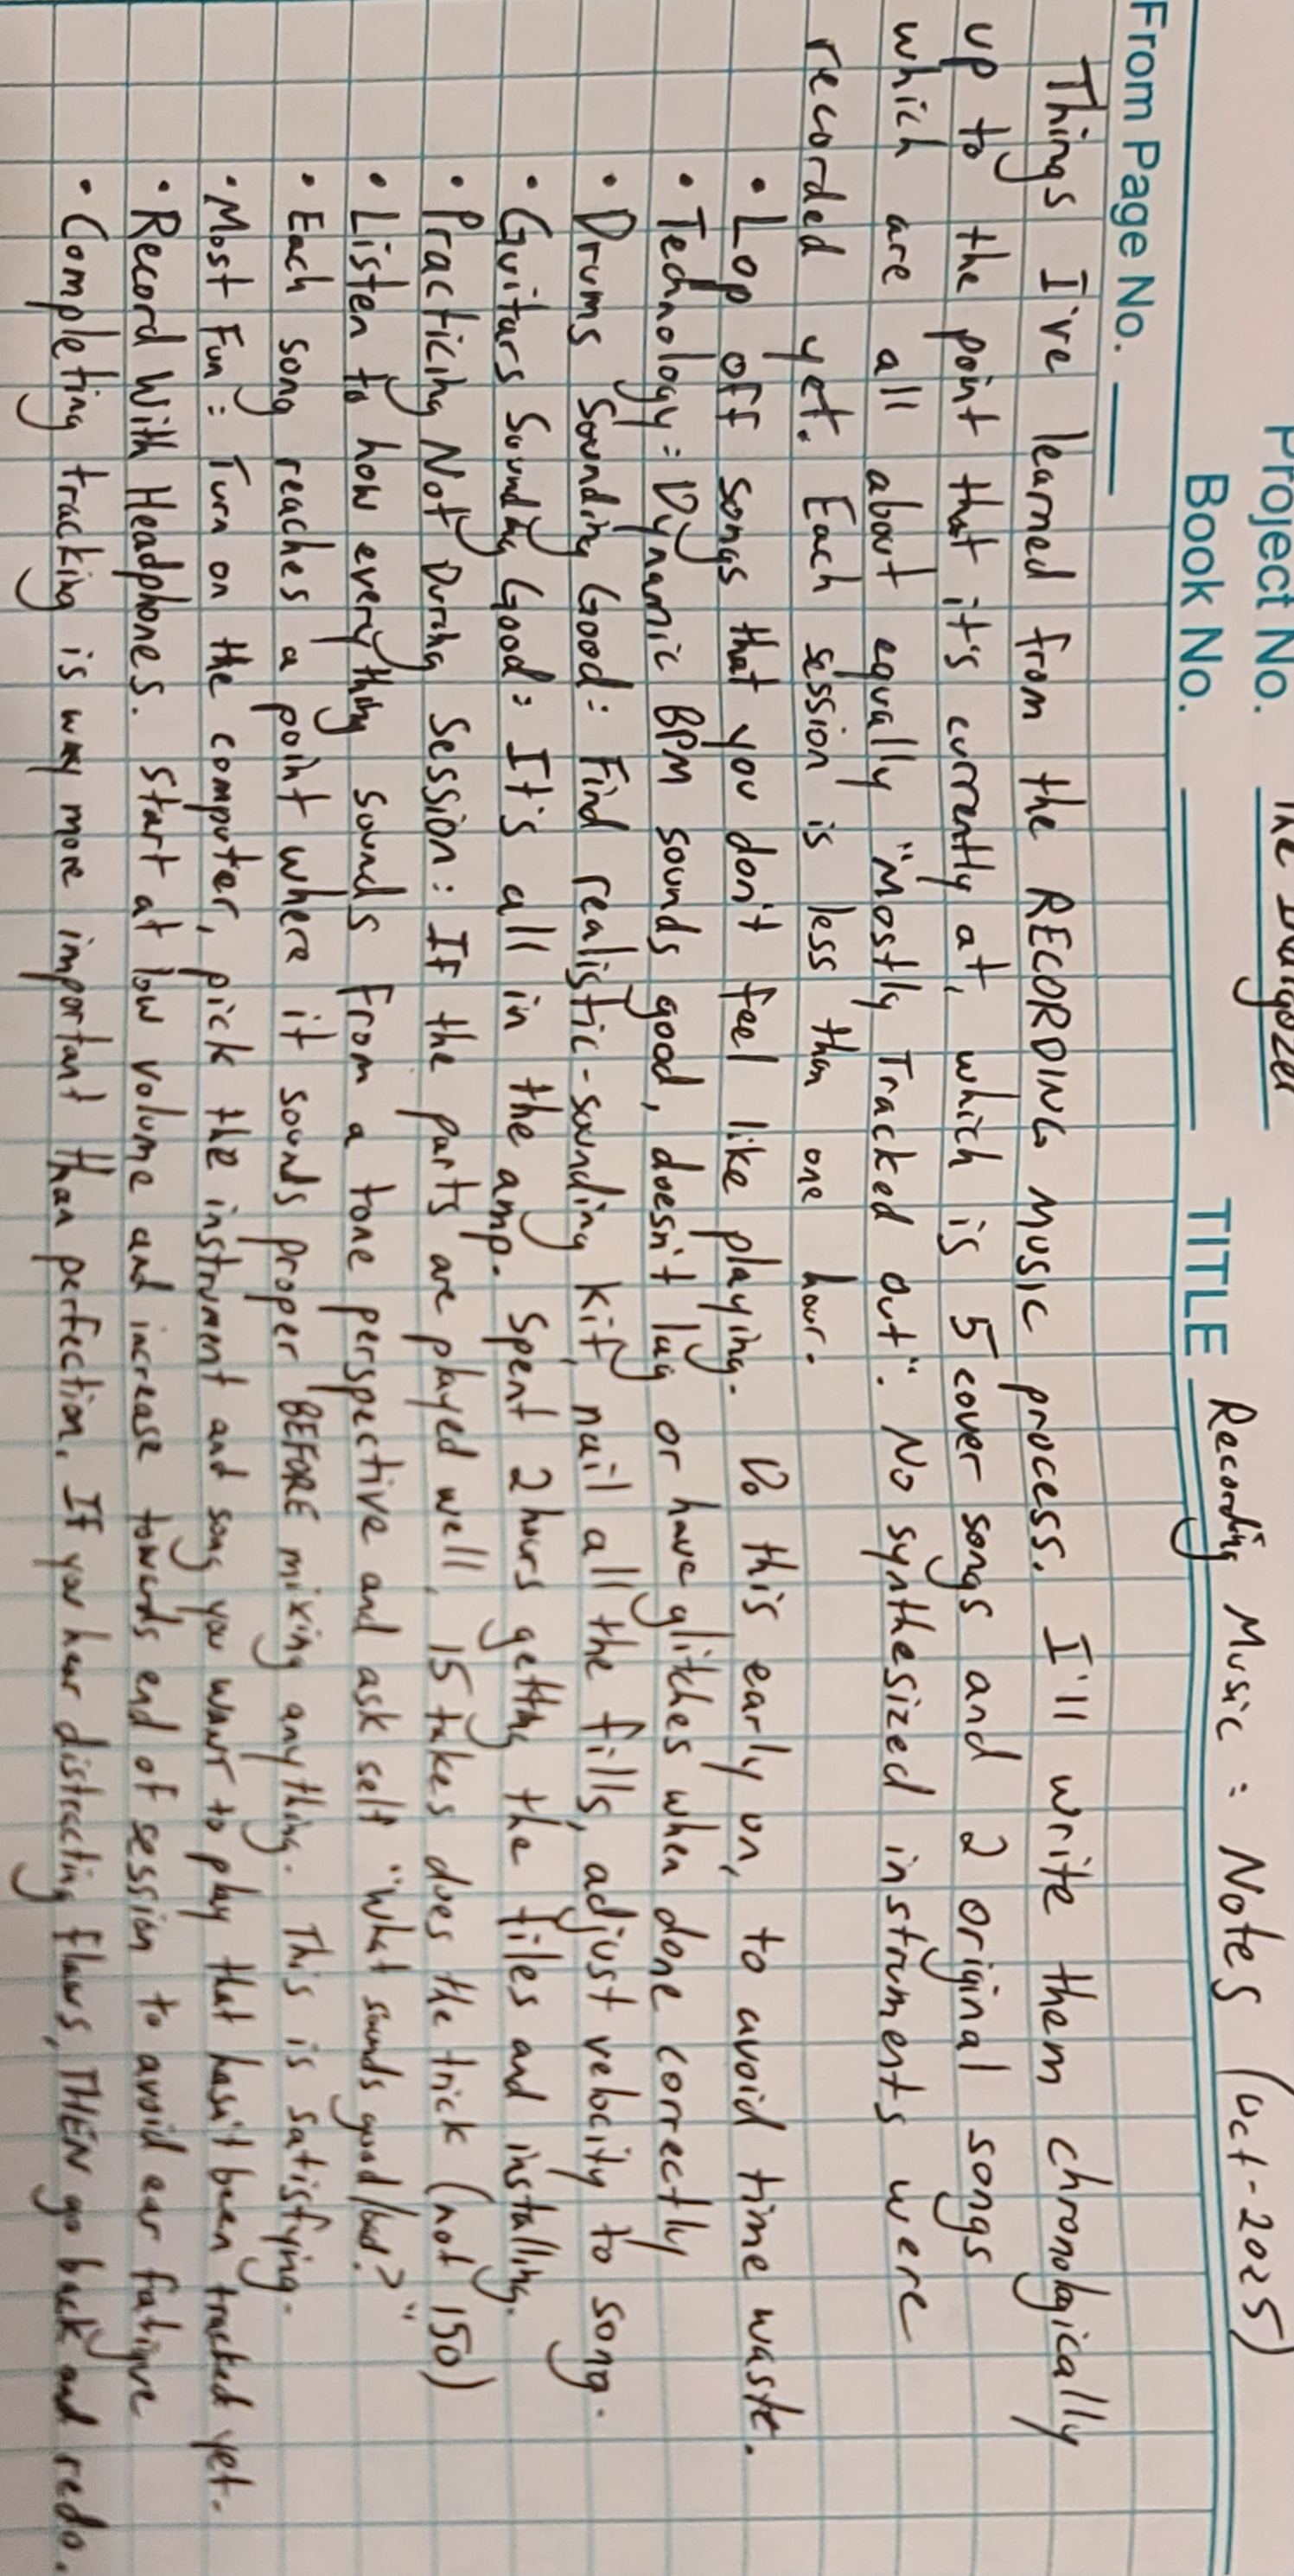 Project No. The
Book No. TITLE Recording Music: Notes (Oct-2025)
From Page No.
Things I've learned from the RECORDING MUSIC process. I'll write them chronologically
up to the point that it's currently at, which is 5 cover songs and 2 original songs
which are all about equally "Mostly Tracked Out". No synthesized instruments were
recorded yet. Each session is less than one hour.
• Lop off songs that you don't feel like playing. Do this early on, to avoid time waste.
• Technology: Dynamic BPM sounds good, doesn't lag or have glitches when done correctly
• Drums Sounding Good: Find realistic-sounding kit, nail all the fills, adjust velocity to song.
• Guitars Sounding Good: It's all in the amp. Spent 2 hours getting the files and installing.
• Practicing Not During Session: If the parts are played well, 15 takes does the trick (not 150)
• Listen to how everything sounds from a tone perspective and ask self "what sounds good/bad?"
• Each song reaches a point where it sounds proper BEFORE mixing anything. This is satisfying.
• Most Fun: Turn on the computer, pick the instrument and song you WANT to play that hasn't been tracked yet.
• Record With Headphones. Start at low volume and increase towards end of session to avoid ear fatigue
• Completing tracking is way more important than perfection. If you hear distracting flaws, THEN go back and redo.